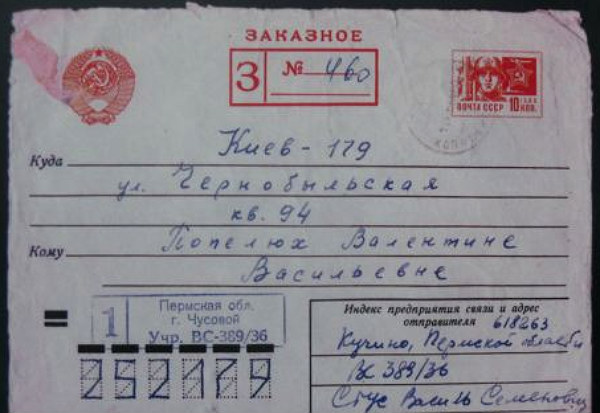 ЗАКАЗНОЕ
З № 460
ПОЧТА СССР 10 КОП.
Куда Киев - 179
ул. Чернобыльская
кв. 94
Кому Попелюх Валентине
Васильевне
1
Пермская обл.
г. Чусовой
Учр. ВС-389/36
252179
Индекс предприятия связи и адрес
отправителя 618263
Кучино, Пермской области
ВС 389/36
Стус Василь Семенович